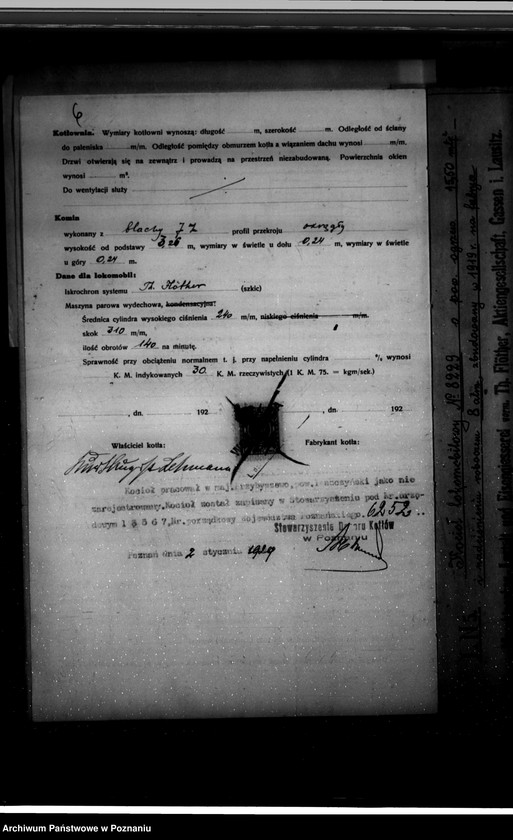 6
Kotłownia. Wymiary kotłowni wynoszą: długość m, szerokość m. Odległość od ściany
do paleniska m/m. Odległość pomiędzy obmurzem kotła a wiązaniem dachu wynosi m/m.
Drzwi otwierają się na zewnątrz i prowadzą na przestrzeń niezabudowaną. Powierzchnia okien
wynosi m².
Do wentylacji służy
Komin
wykonany z blachy profil przekroju okrągły
wysokość od podstawy m, wymiary w świetle u dołu 0,24 m, wymiary w świetle
u góry 0,24 m.
Dane dla lokomobil:
Iskrochron systemu Th. Flöther (szkic)
Maszyna parowa wydechowa, kondensacyjna:
Średnica cylindra wysokiego ciśnienia 240 m/m, niskiego ciśnienia m/m.
skok 310 m/m,
ilość obrotów 140 na minutę.
Sprawność przy obciążeniu normalnem t. j. przy napełnieniu cylindra % wynosi
K. M. indykowanych 30 K. M. rzeczywistych (1 K. M. 75. = kgm/sek.)
, dn. 192 , dn. 192
Właściciel kotła: Fabrykant kotła:
Lehmann
Kocioł pracował w maj. pow. jako nie
zarejestrowany. Kocioł został zapisany w Stowarzyszeniu pod Nr. urzę-
dowym 13367, Nr. porządkowy Województwa Poznańskiego. 6252.
Stowarzyszenie Dozoru Kotłów
w Poznaniu
Poznań dnia 2 stycznia 1929
Th. Flöther, Aktiengesellschaft, Gassen i. Lausitz.
Kocioł lokomobilowy No 8229 o pow. ogrzew.
8 atm. zbudowany w 1919 r. na fabryce
Archiwum Państwowe w Poznaniu
szukajwarchiwach.gov.pl